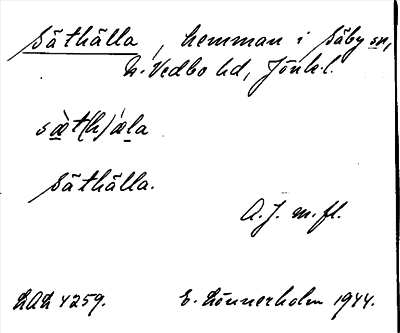 Säthälla, hemman i Säby sn,
N. Vedbo hd, Jönk.l.
sæ̀t(h)æ̀la
Säthälla.
A.J. m.fl.
LAL 4259.
E. Lönnerholm 1944.